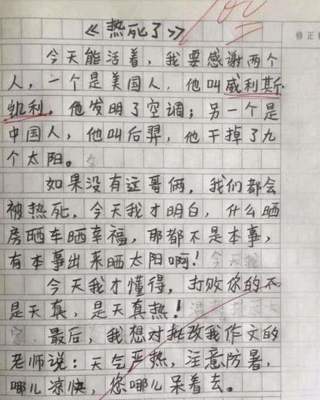 《热死了》
今天能活着，我要感谢两个
人，一个是美国人，他叫威利斯
开利。他发明了空调；另一个是
中国人，他叫后羿，他干掉了九
个太阳。
如果没有这哥俩，我们都会
被热死，今天我才明白，什么晒
房晒车晒幸福，那都不是本事，
有本事出来晒太阳啊！
今天我才懂得，打败你的不
是天真，是天真热！
最后，我想对批改我作文的
老师说：天气严热，注意防暑，
哪儿凉快，您哪儿呆着去。